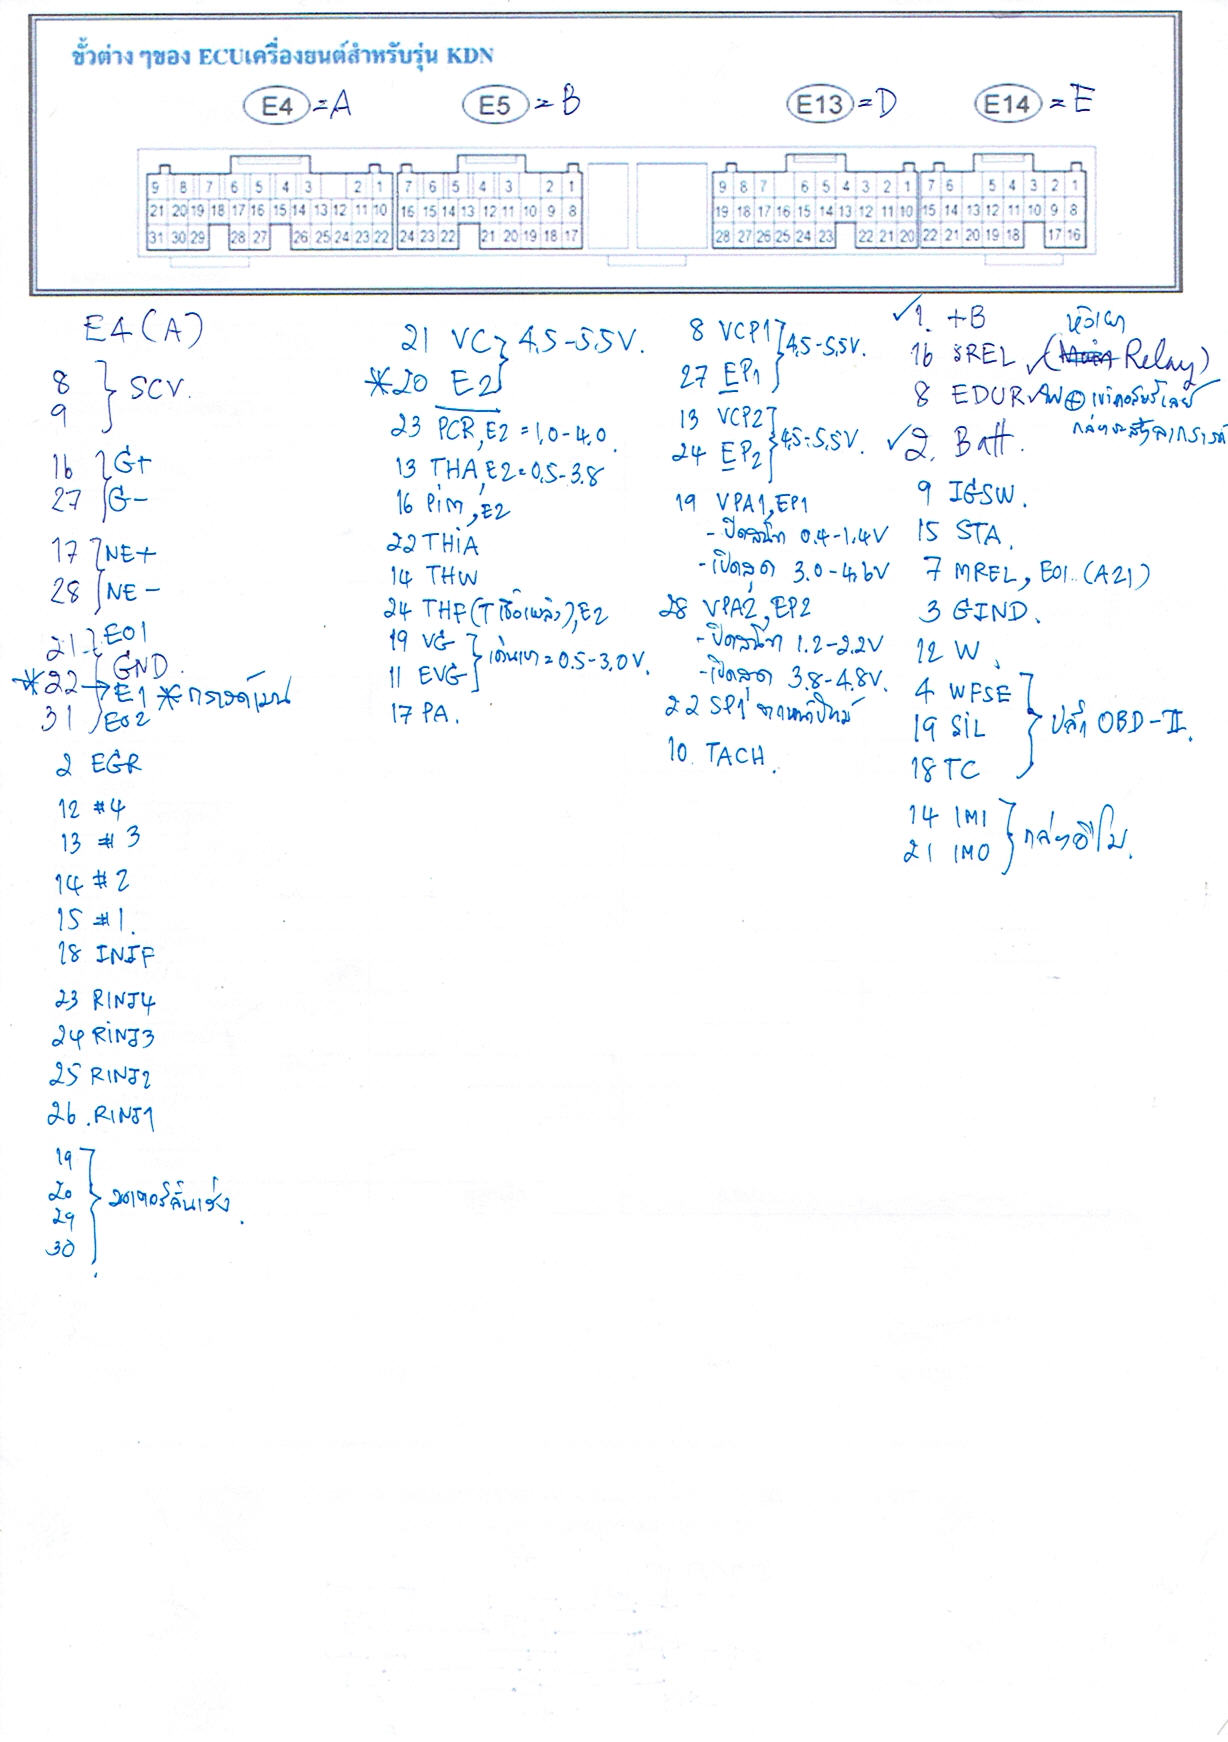 ขั้วต่าง ๆของ ECUเครื่องยนต์สำหรับรุ่น KDN
E4 =A E5 =B E13 =D E14 =E
9 8 7 6 5 4 3 2 1 7 6 5 4 3 2 1 9 8 7 6 5 4 3 2 1 7 6 5 4 3 2 1
21 20 19 18 17 16 15 14 13 12 11 10 16 15 14 13 12 11 10 9 8 19 18 17 16 15 14 13 12 11 10 15 14 13 12 11 10 9 8
31 30 29 28 27 26 25 24 23 22 24 23 22 21 20 19 18 17 28 27 26 25 24 23 22 21 20 22 21 20 19 18 17 16
E4 (A)
8
9 } SCV.
16 G+
27 G-
17 NE+
28 NE-
21 E01
GND.
*22 → E1 * กราวด์เมน
31 E02
2 EGR
12 #4
13 #3
14 #2
15 #1.
18 INJF
23 RINJ4
24 RINJ3
25 RINJ2
26. RINJ1
19
20
29
30
มอเตอร์ลิ้นเร่ง.
21 VC } 4.5-5.5V.
*20 E2
23 PCR,E2 =1.0-4.0
13 THA,E2=0.5-3.8
16 PiM,E2
22 THiA
14 THW
24 THF(T เชื้อเพลิง),E2
19 VG } เดินเบา=0.5-3.0V.
11 EVG
17 PA.
8 VCP1 } 4.5-5.5V.
27 EP1
13 VCP2 } 4.5-5.5V.
24 EP2
19 VPA1,EP1
- ปิดสนิท 0.4-1.4V
- เปิดสุด 3.0-4.6V
28 VPA2,EP2
- ปิดสนิท 1.2-2.2V
- เปิดสุด 3.8-4.8V.
22 SP1 จากหน้าปัทม์
10. TACH.
✓1. +B หัวเผา
16 SREL ✓( Relay)
8 EDUR ✓ไฟ⊕เข้าคอล์ยรีเลย์
✓2. Batt.
9 IGSW.
15 STA.
7 MREL, E01.. (A21)
3 GIND.
12 W.
4 WFSE
19 SiL } ปลั๊ก OBD-II.
18 TC
14 IMI
21 IMO } กล่องอิโม.